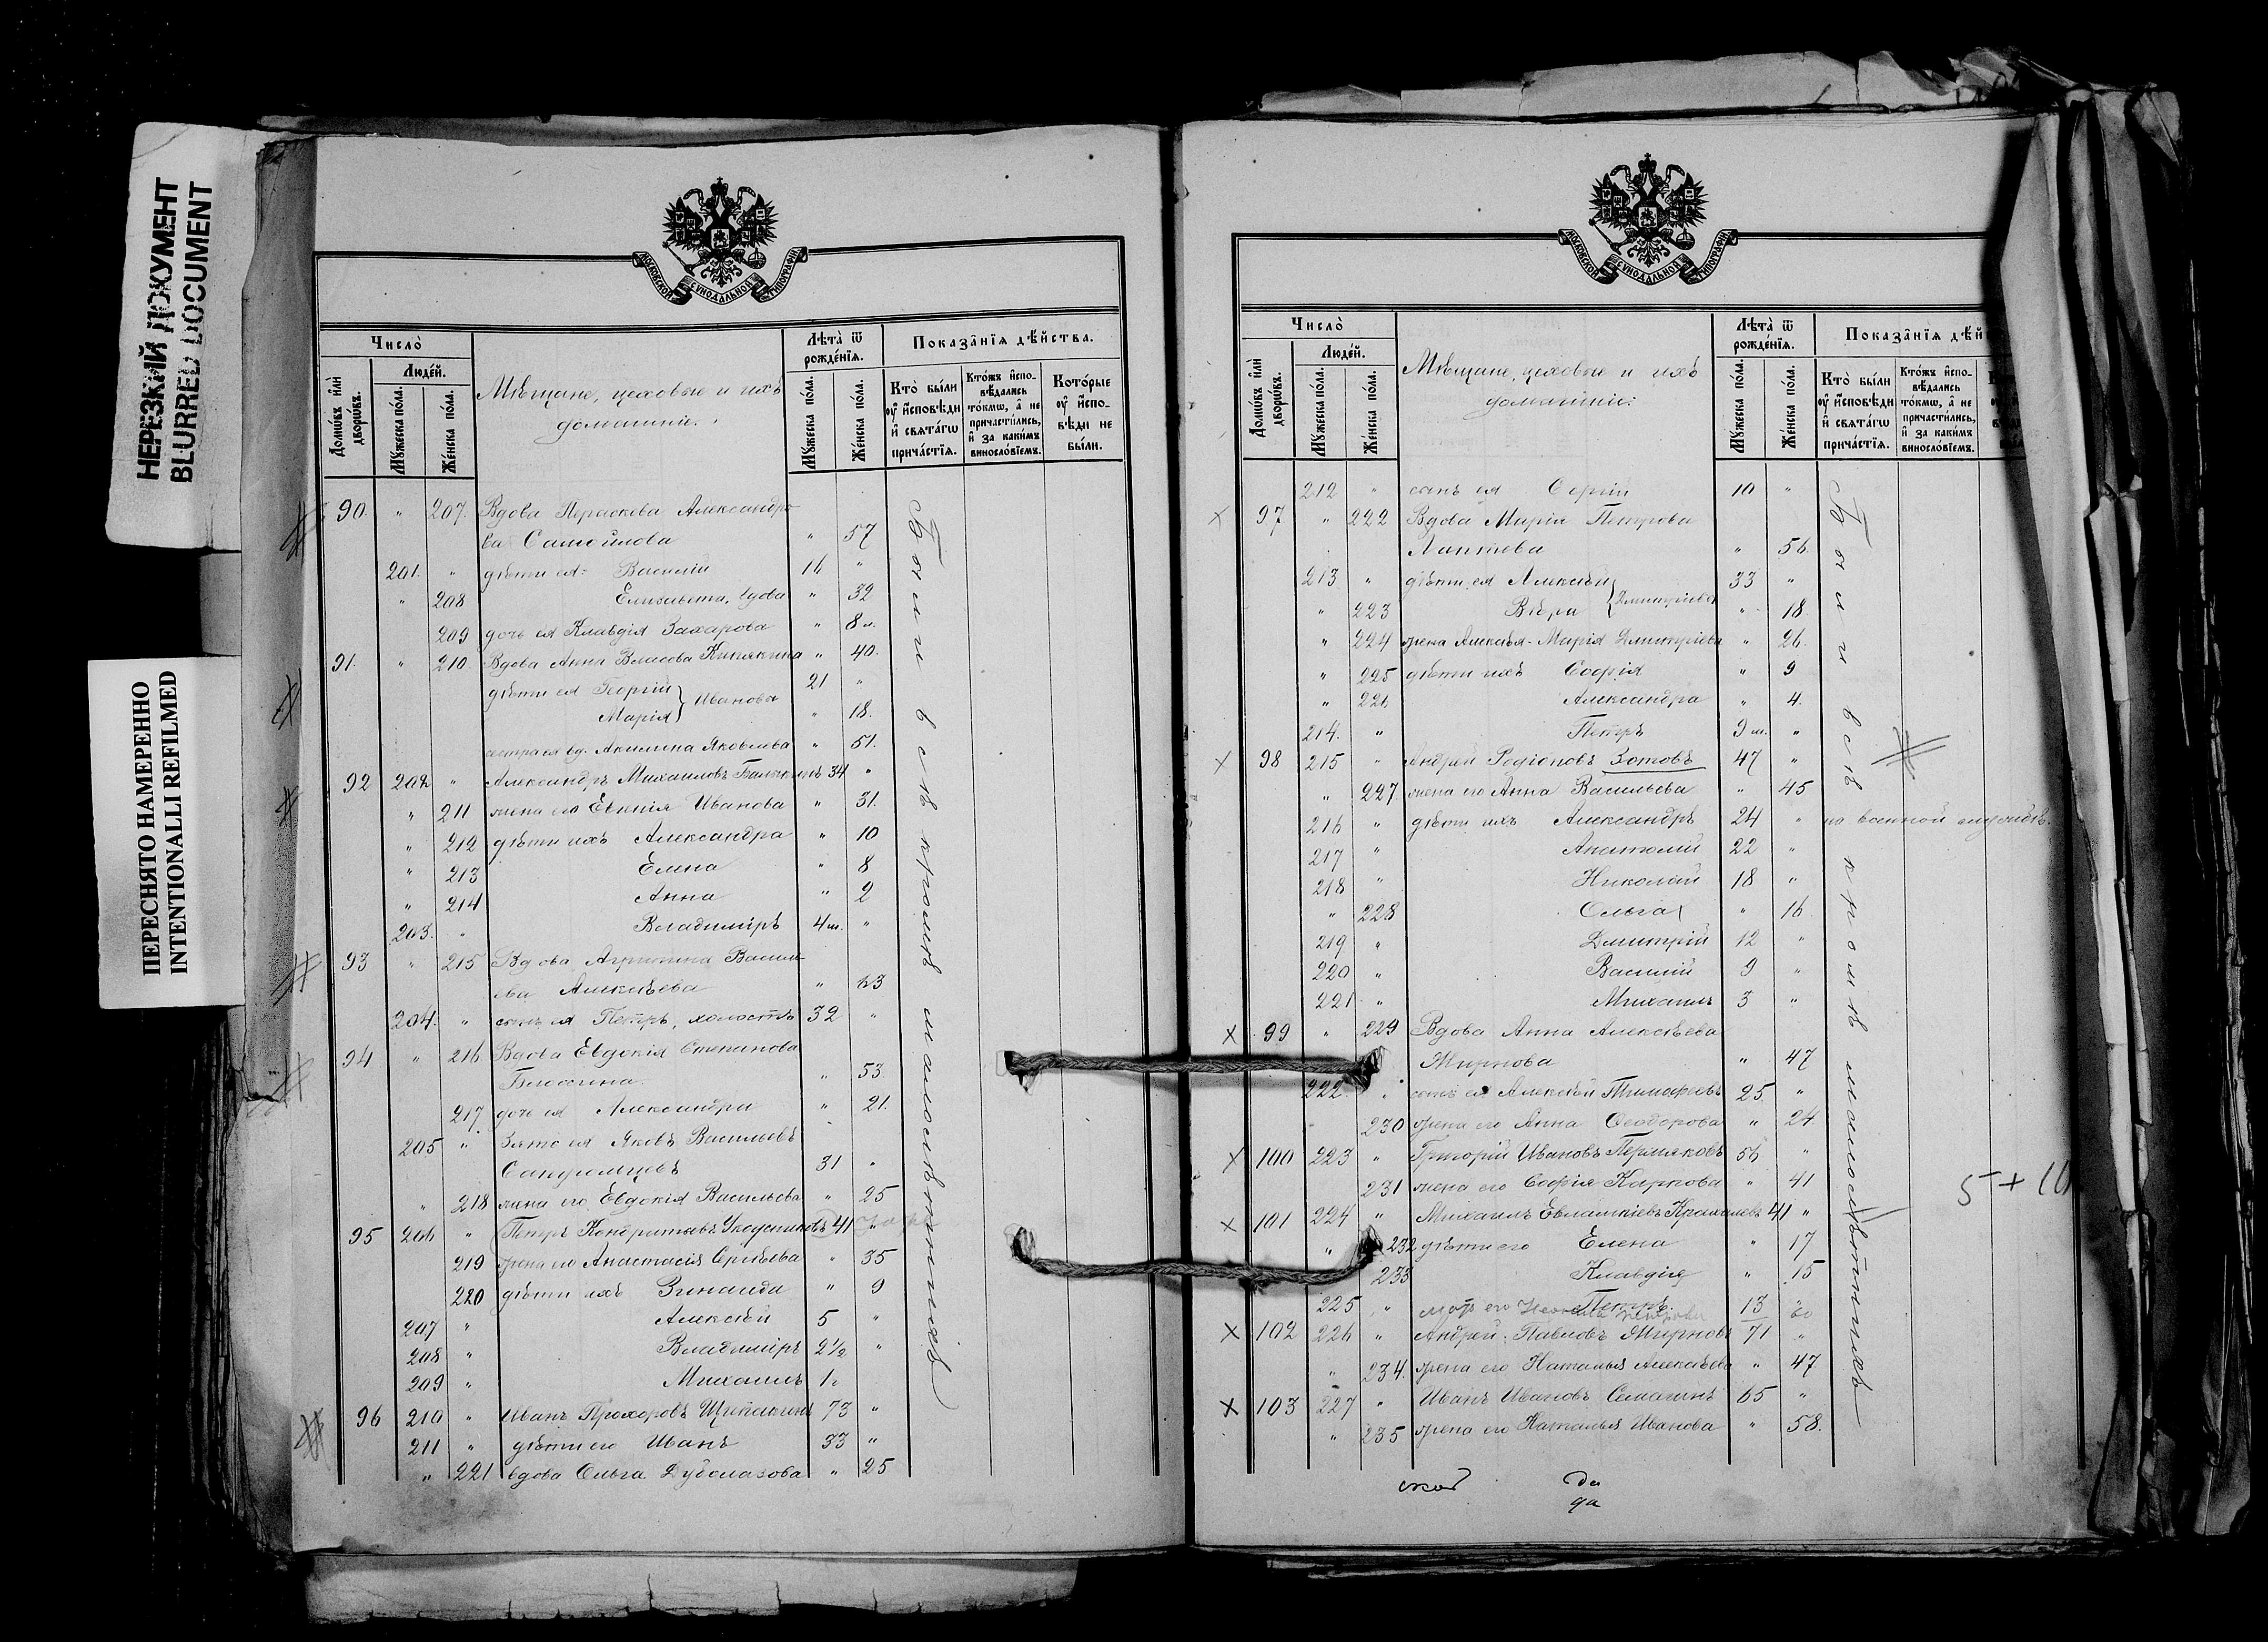 НЕРЕЗКИЙ ДОКУМЕНТ
BLURRED DOCUMENT
ПЕРЕСНЯТО НАМЕРЕННО
INTENTIONALLI REFILMED
МОСКОВСКОЙ СѴНОДАЛЬНОЙ ТИПОГРАФІИ
Число̀
Лѣта̀ ѿ рожде́нїѧ.
Показа̑нїѧ дѣ́йства.
Домѡ́въ и҆лѝ дворѡ́въ.
Люде́й.
Мꙋ́жеска по́ла.
Же́нска по́ла.
Мѣщане, цеховые и ихъ
домашніе.
Мꙋ́жеска по́ла.
Же́нска по́ла.
Кто̀ бы́ли ᲂу҆ и҆сповѣ́ди и҆ свѧта́гѡ прича́стїѧ.
Кто́жъ и҆сповѣ́дались то́кмѡ, а҆ не причасти́лись, и҆ за каки́мъ винослові́емъ.
Кото́рые ᲂу҆ и҆сповѣ́ди не бы́ли.
90. " 207. Вдова Параскева Александро-
ва Самойлова " 57
201. " дѣти ея: Василій 16 "
" 208 Елизавета, вдова " 32
209 дочь ея Клавдія Захарова " 8 м.
91. " 210 Вдова Анна Власова " 40.
дѣти ея Георгій } Иванова 21 "
Марія " 18.
сестра ея вд. Акилина Яковлева " 51.
92 202 " Александръ Михаиловъ 34 "
" 211 жена его Евгенія Иванова " 31.
" 212 дѣти ихъ Александра " 10
" 213 Елена " 8
" 214 Анна " 2
203. " Владиміръ 4 м. "
93 " 215 Вдова Агрипина Василь-
ева Алексѣева " 63
204. " сынъ ея Петръ, холостъ 32 "
94 " 216 Вдова Евдокія Степанова
" 53
217 дочь ея Александра " 21.
205 " Зять ея Яковъ Васильевъ
31 "
" 218 жена его Евдокія Васильева " 25
95 206 " Петръ Кондратьевъ 41 "
219 жена его Анастасія Сергѣева " 35
220 дѣти ихъ Зинаида " 9
207 " Алексѣй 5 "
208 " Владиміръ 2½ "
209 " Михаилъ 1
96 210 " Иванъ Прохоровъ 73 "
211 " дѣти его Иванъ 33 "
" 221 вдова Ольга " 25
Были всѣ кромѣ малолѣтнихъ
МОСКОВСКОЙ СѴНОДАЛЬНОЙ ТИПОГРАФІИ
Число̀
Лѣта̀ ѿ рожде́нїѧ.
Показа̑нїѧ дѣ́й
Домѡ́въ и҆лѝ дворѡ́въ.
Люде́й.
Мꙋ́жеска по́ла.
Же́нска по́ла.
Мѣщане, цеховые и ихъ
домашніе:
Мꙋ́жеска по́ла.
Же́нска по́ла.
Кто̀ бы́ли ᲂу҆ и҆сповѣ́ди и҆ свѧта́гѡ прича́стїѧ.
Кто́жъ и҆сповѣ́дались то́кмѡ, а҆ не причасти́лись, и҆ за каки́мъ винослові́емъ.
212 " сынъ ея Сергій 10 "
97 " 222 Вдова Марія Петрова
Лаптева " 56.
213 " дѣти ея Алексѣй } Димитріевы 33 "
" 223 Вѣра " 18.
" 224 жена Алексѣя - Марія Димитріева " 26.
" 225 дѣти ихъ Софія " 9
" 226 Александра " 4.
214. " Петръ 9 м. "
98 215 " Андрей Родіоновъ Зотовъ 47 "
" 227. жена его Анна Васильева " 45
216 " дѣти ихъ Александръ 24 " на военной службѣ.
217 " Анатолій 22 "
218 " Николай 18 "
" 228 Ольга " 16
219 " Димитрій 12 "
220 " Василій 9 "
221 " Михаилъ 3 "
99 " 229 Вдова Анна Алексѣева
Мирнова " 47
222 " сынъ ея Алексѣй Тимофеевъ 25. "
230 жена его Анна Ѳеодорова " 24
100 223 " Григорій Ивановъ Пермяковъ 56 "
231 жена его Софія Карпова " 41
101 224 " Михаилъ Евлампіевъ 41 "
" 232 дѣти его Елена " 17
233 Клавдія " 15
225 " Петръ. 13 "
102 226 " Андрей Павловъ Мирновъ 71 "
" 234. жена его Наталья Алексѣева " 47
103 227 " Иванъ Ивановъ Семагинъ 65 "
" 235 жена его Наталья Иванова " 58.
Были всѣ кромѣ малолѣтнихъ
5 + 10
да
да